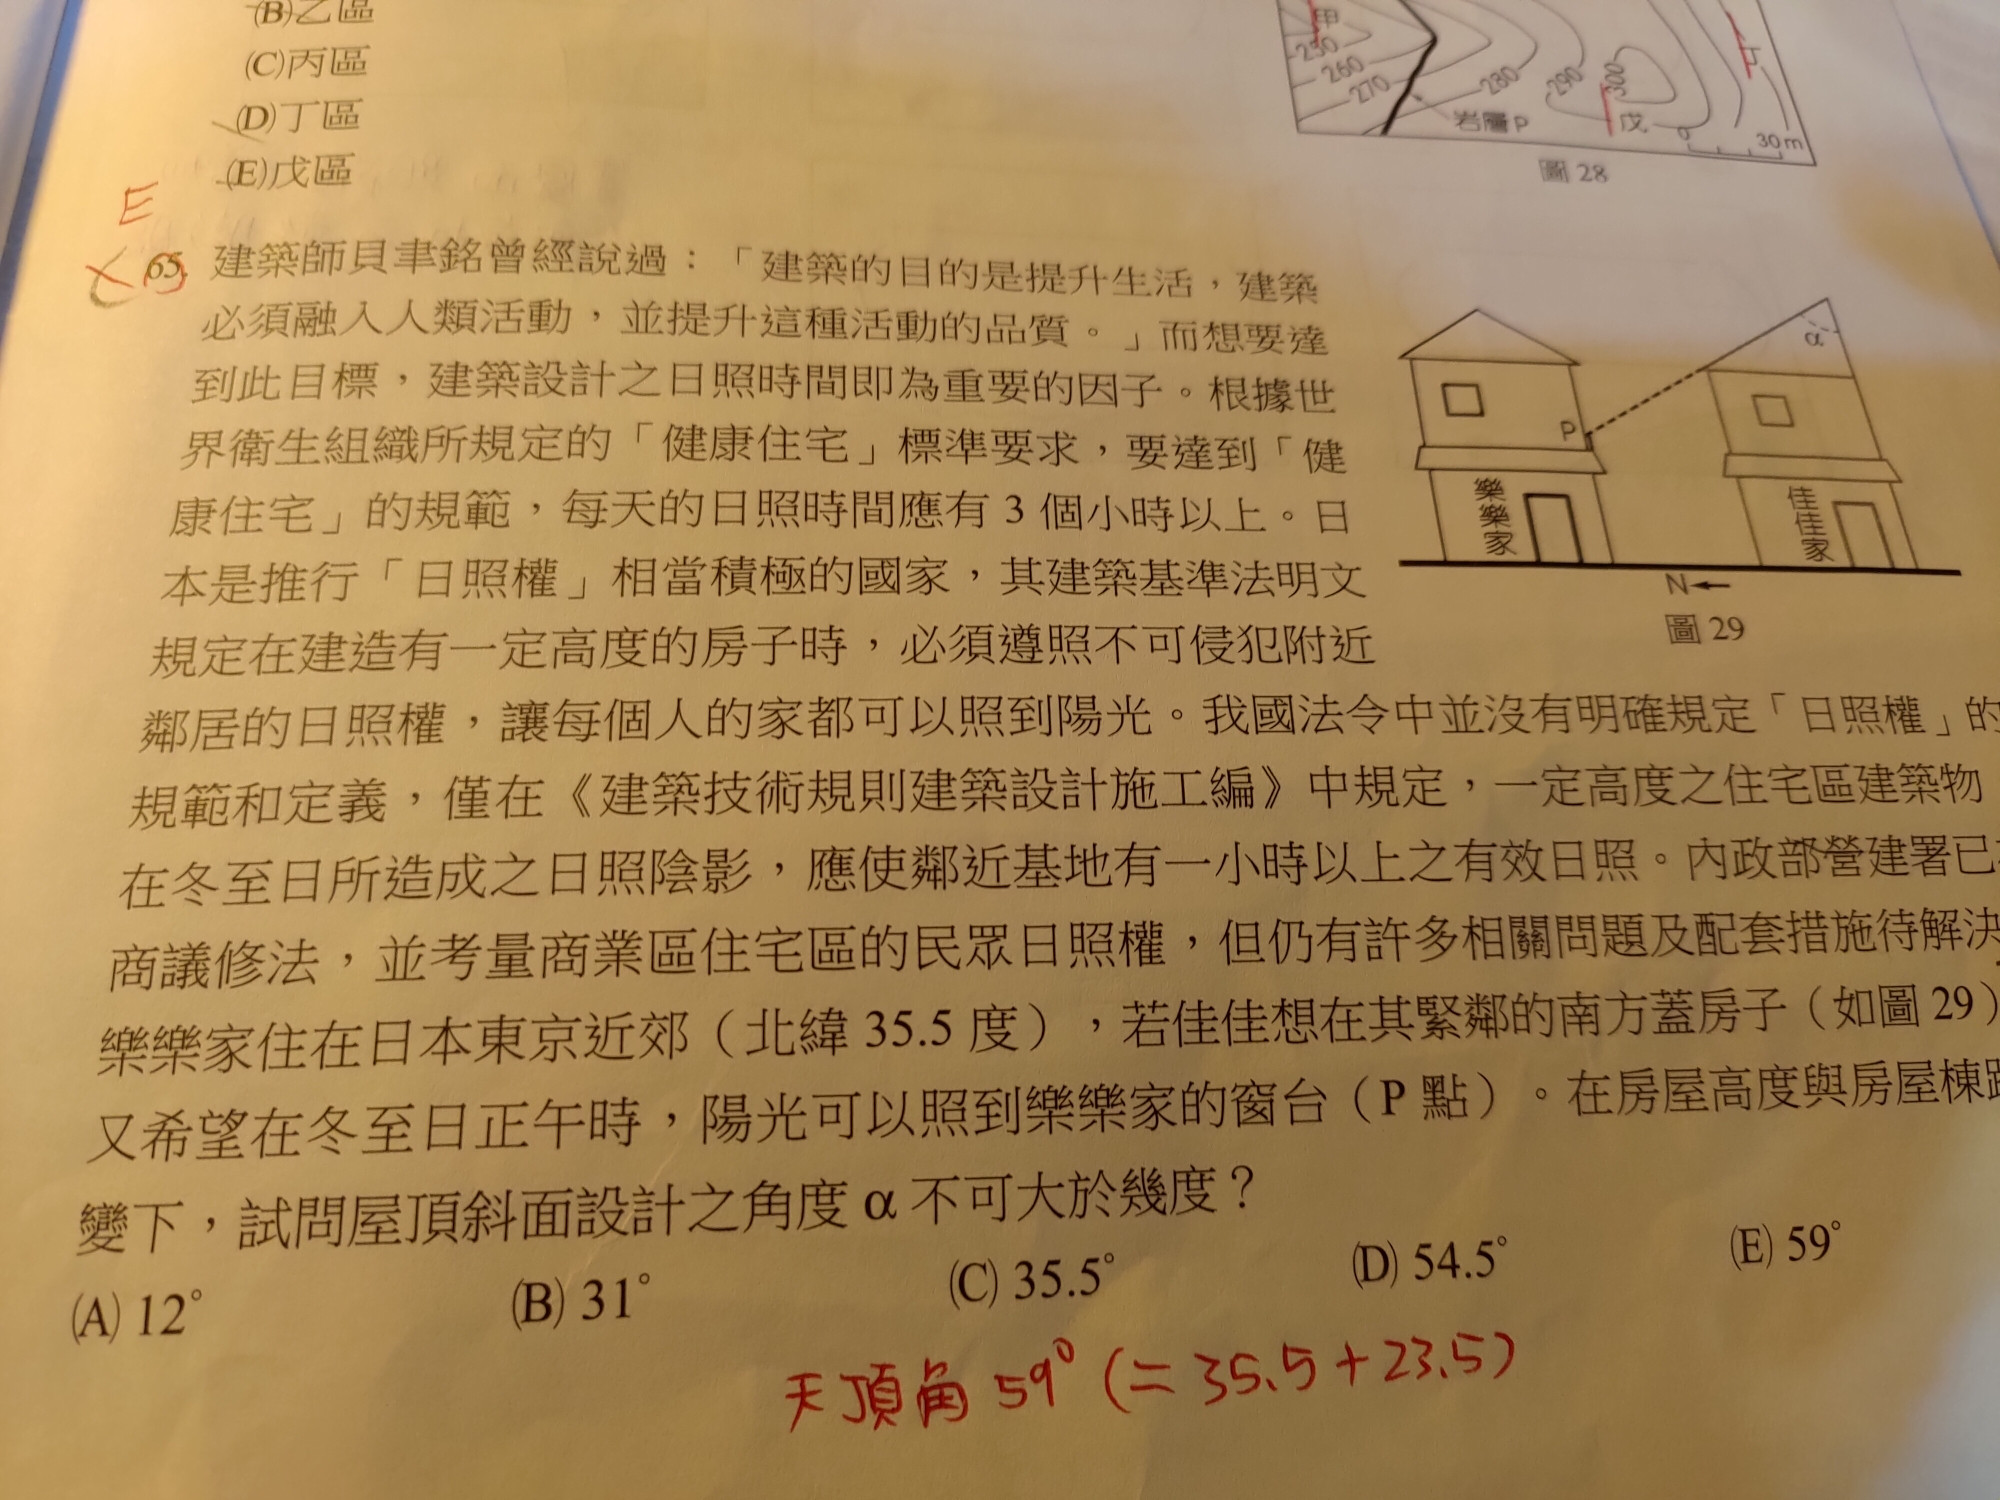 (B)乙區
(C)丙區
(D)丁區
(E)戊區
甲
250
260
270
280
290
300
岩層P
戊
0
30 m
圖 28
E
65. 建築師貝聿銘曾經說過：「建築的目的是提升生活，建築
必須融入人類活動，並提升這種活動的品質。」而想要達
到此目標，建築設計之日照時間即為重要的因子。根據世
界衛生組織所規定的「健康住宅」標準要求，要達到「健
康住宅」的規範，每天的日照時間應有 3 個小時以上。日
本是推行「日照權」相當積極的國家，其建築基準法明文
規定在建造有一定高度的房子時，必須遵照不可侵犯附近
鄰居的日照權，讓每個人的家都可以照到陽光。我國法令中並沒有明確規定「日照權」的
規範和定義，僅在《建築技術規則建築設計施工編》中規定，一定高度之住宅區建築物
在冬至日所造成之日照陰影，應使鄰近基地有一小時以上之有效日照。內政部營建署已
商議修法，並考量商業區住宅區的民眾日照權，但仍有許多相關問題及配套措施待解決
樂樂家住在日本東京近郊（北緯 35.5 度），若佳佳想在其緊鄰的南方蓋房子（如圖 29）
又希望在冬至日正午時，陽光可以照到樂樂家的窗台（P 點）。在房屋高度與房屋棟距
變下，試問屋頂斜面設計之角度 α 不可大於幾度？
(A) 12°
(B) 31°
(C) 35.5°
(D) 54.5°
(E) 59°
α
P
樂樂家
佳佳家
N←
圖 29
天頂角 59° (= 35.5 + 23.5)